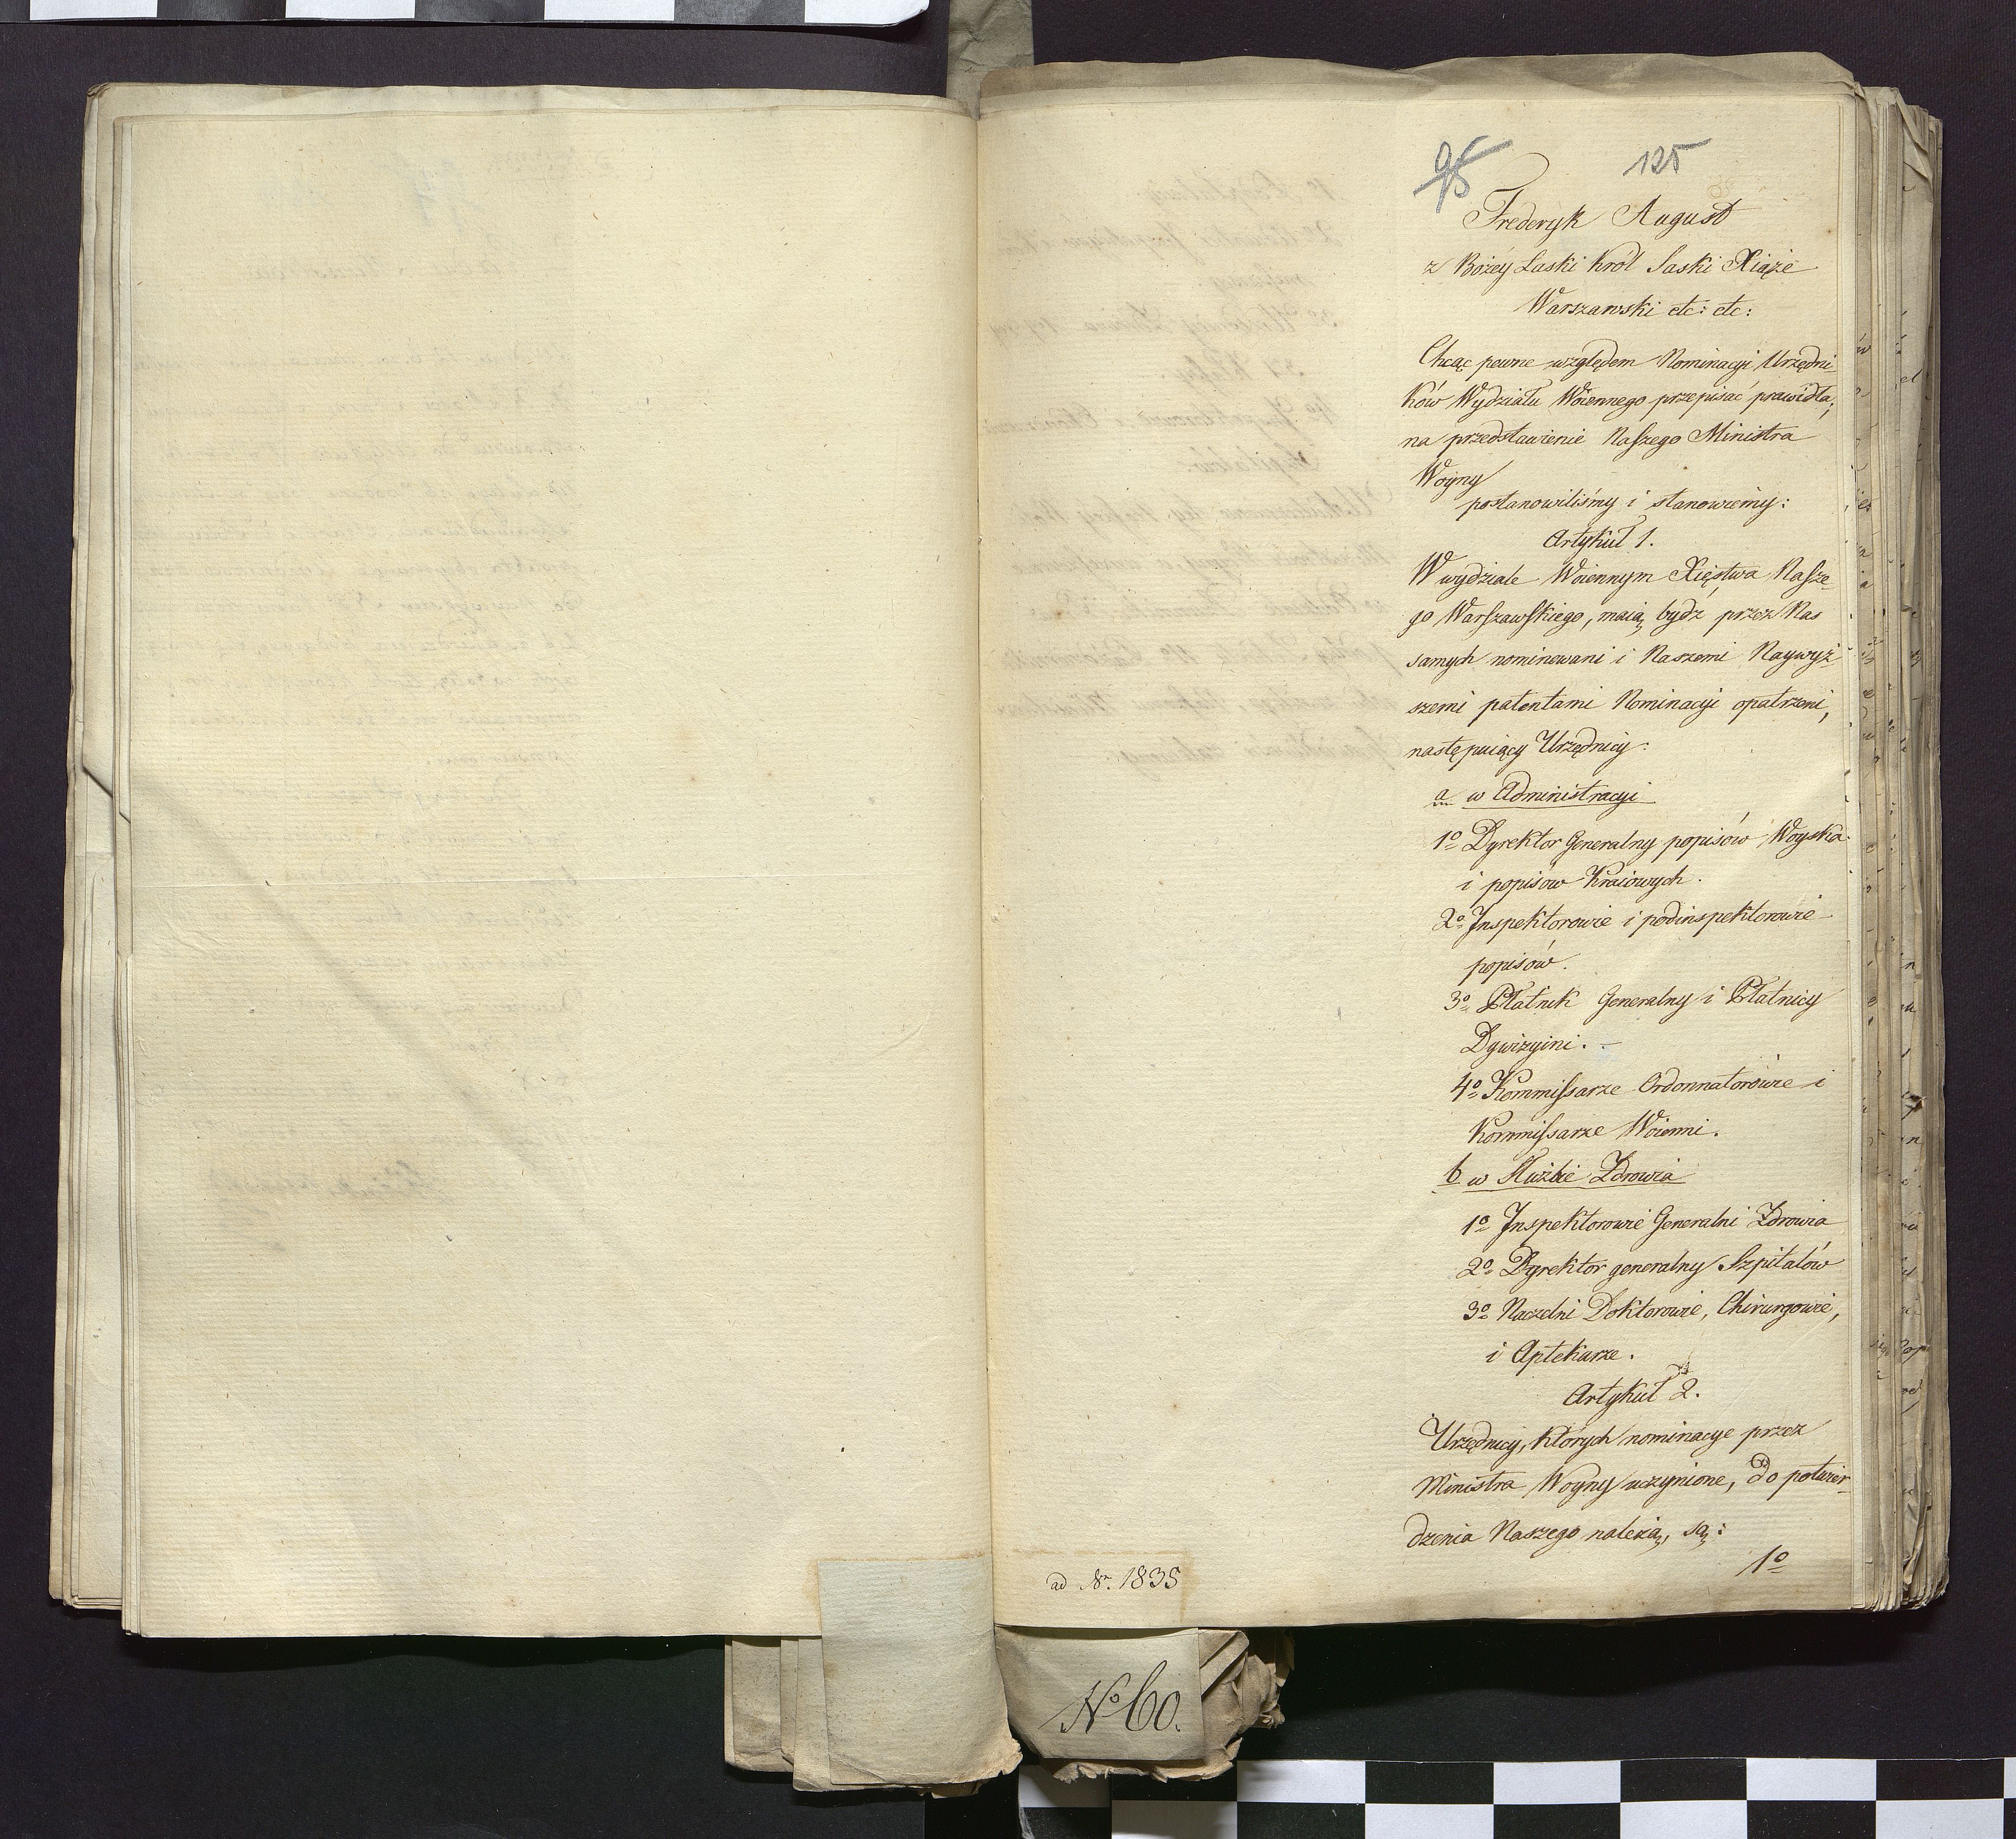 95 125
Frederyk August
z Bożey Łaski Król Saski Xiąże
Warszawski etc: etc:
Chcąc pewne względem Nominacyi Urzędni-
ków Wydziału Woiennego przepisać prawidła;
na przedstawienie Naszego Ministra
Woyny
postanowiliśmy i stanowiemy:
Artykuł 1.
W wydziale Woiennym Xięstwa Nasze-
go Warszawskiego, maią bydź przez Nas
samych nominowani i Naszemi Naywyż-
szemi patentami Nominacyi opatrzeni,
następuiący Urzędnicy:
a w Administracyi
1o Dyrektor Generalny popisów Woyska
i popisow Kraiowych.
2o Inspektorowie i podinspektorowie
popisów.
3o Płatnik Generalny i Płatnicy
Dywizyini. -
4o Kommissarze Ordonnatorowie i
Kommissarze Woienni.
b w Służbie Zdrowia
1o Inspektorowie Generalni Zdrowia
2o Dyrektor generalny Szpitalów
3o Naczelni Doktorowie, Chirurgowie,
i Aptekarze.
Artykuł 2.
Urzędnicy, których nominacye przez
Ministra Woyny uczynione, do potwier-
dzenia Naszego należą, są:
1o
ad Nr. 1835
No 60.